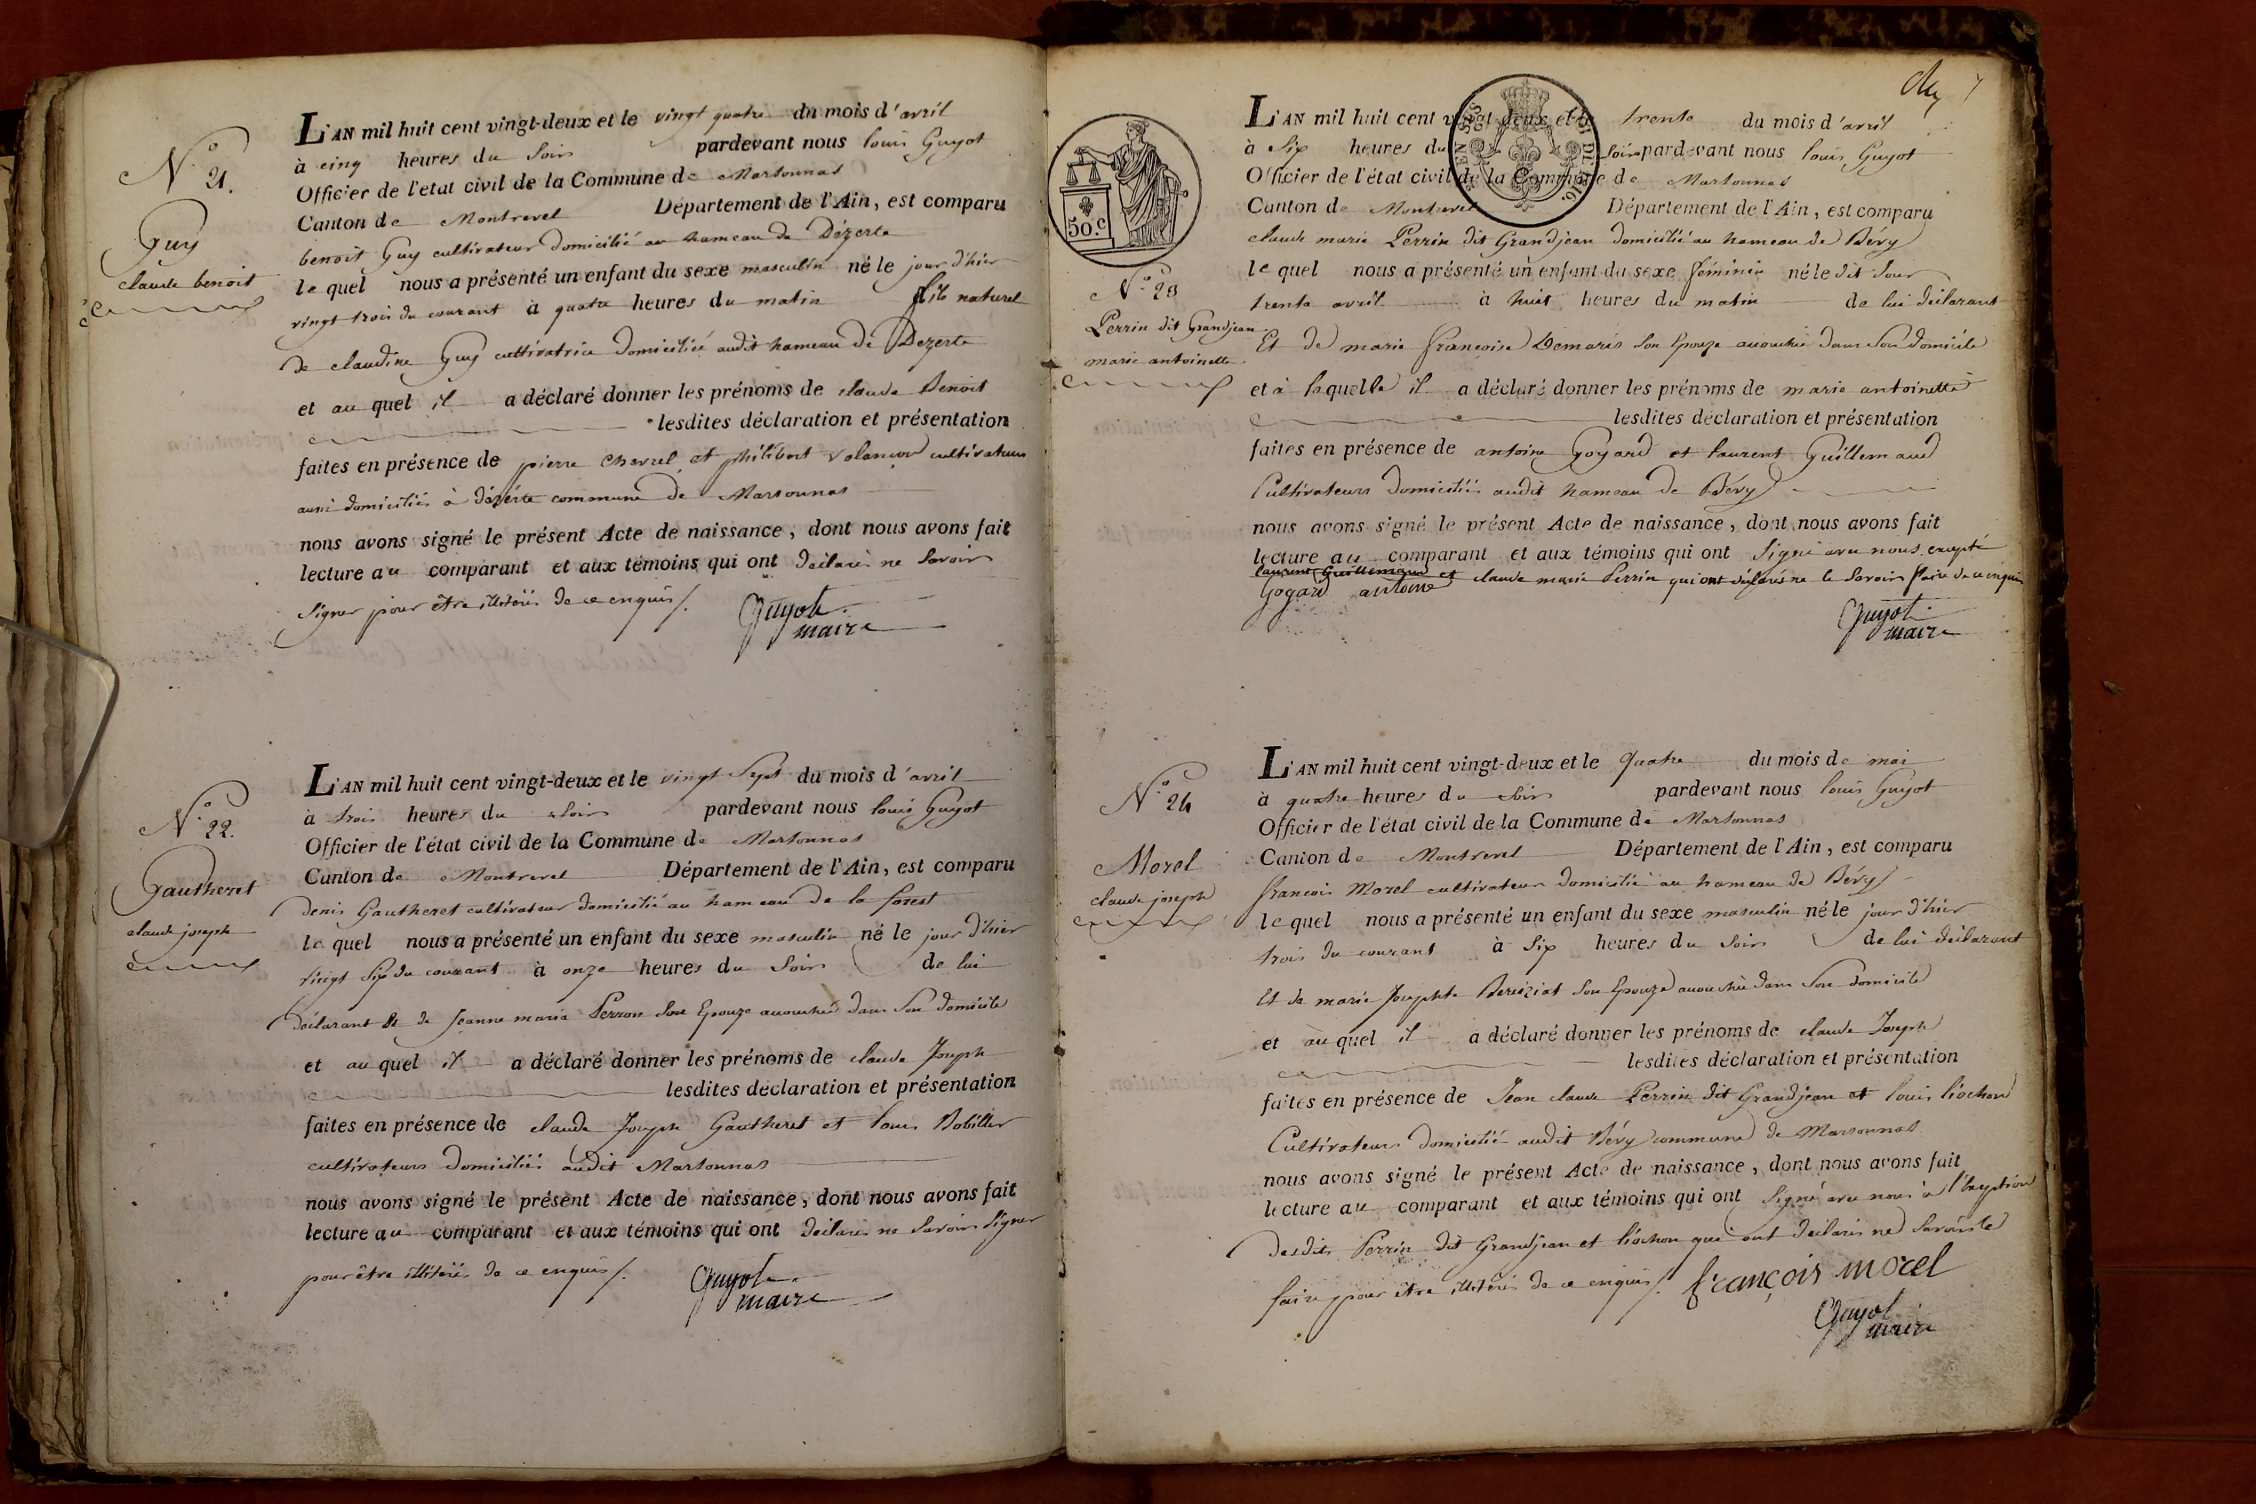 N.° 21.
Guy
claude benoit
L'AN mil huit cent vingt-deux et le vingt quatre du mois d'avril
à cinq heures du Soir pardevant nous louis Guyot
Officier de l'etat civil de la Commune de Marsonnas
Canton de Montrevel Département de l'Ain, est comparu
benoit Guy cultivateur domicilié au hameau de Dézerte
le quel nous a présenté un enfant du sexe masculin né le jour d'hier
vingt trois du courant à quatre heures du matin fils naturel
de claudine Guy cultivatrice domiciliée audit hameau de Dezerte
et au quel il a déclaré donner les prénoms de claude Benoit
lesdites déclaration et présentation
faites en présence de pierre Chevrel et philibert cultivateurs
aussi domiciliés à dézerte commune de Marsonnas
nous avons signé le présent Acte de naissance, dont nous avons fait
lecture au comparant et aux témoins qui ont déclarés ne Savoir
Signer pour être illitérés de ce enquis /.
Guyot
maire
N.° 22.
Gautheret
claude joseph
L'AN mil huit cent vingt-deux et le vingt Sept du mois d'avril
à trois heures du Soir pardevant nous louis Guyot
Officier de l'état civil de la Commune de Marsonnas
Canton de Montrevel Département de l'Ain, est comparu
denis Gautheret cultivateur domicilié au hameau de la forest
le quel nous a présenté un enfant du sexe masculin né le jour d'hier
vingt Six du courant à onze heures du Soir de lui
déclarant Et de Jeanne maria Perron Son Epouze accouchée dans Son domicile
et au quel il a déclaré donner les prénoms de claude Joseph
lesdites déclaration et présentation
faites en présence de claude Joseph Gautheret et louis Bobillier
cultivateurs domiciliés audit Marsonnas
nous avons signé le présent Acte de naissance, dont nous avons fait
lecture au comparant et aux témoins qui ont déclarés ne Savoir Signer
pour être illitérés de ce enquis /.
Guyot
maire
50.c
N.° 23
Perrin dit Grandjean
marie antoinette
L'AN mil huit cent vingt-deux et le trente du mois d'avril
à Six heures du Soir pardevant nous louis Guyot
Officier de l'état civil de la Commune de Marsonnas
Canton de Montrevel Département de l'Ain, est comparu
claude marie Perrin dit Grandjean domicilié au hameau de Bévy
le quel nous a présenté un enfant du sexe féminin né le dit Jour
trente avril à huit heures du matin de lui déclarant
Et de marie francoise Demaris Son Epouze accouchée dans Son domicile
et à laquelle il a déclaré donner les prénoms de marie antoinette
lesdites déclaration et présentation
faites en présence de antoine Goyard et laurent Guillemaud
Cultivateurs domiciliés audit hameau de Bévy
nous avons signé le présent Acte de naissance, dont nous avons fait
lecture au comparant et aux témoins qui ont Signé avec nous excepté
laurent Guillemaud et claude marie Perrin qui ont déclarés ne le Savoir faire de ce enquis
Goyard antoine
Guyot
maire
N.° 24
Morel
claude joseph
L'AN mil huit cent vingt-deux et le quatre du mois de mai
à quatre heures du Soir pardevant nous louis Guyot
Officier de l'état civil de la Commune de Marsonnas
Canton de Montrevel Département de l'Ain, est comparu
francois Morel cultivateur domicilié au hameau de Bévy
le quel nous a présenté un enfant du sexe masculin né le jour d'hier
trois du courant à Six heures du Soir de lui déclarant
Et de marie Josephte Bereiziat Son Epouze accouchée dans Son domicile
et au quel il a déclaré donner les prénoms de claude Joseph
lesdites déclaration et présentation
faites en présence de Jean claude Perrin dit Grandjean et louis liochon
Cultivateurs domiciliés audit Bévy commune de Marsonnas
nous avons signé le présent Acte de naissance, dont nous avons fait
lecture au comparant et aux témoins qui ont Signé avec nous à l'exeption
desdits Perrin dit Grandjean et liochon qui ont déclarés ne Savoir le
faire pour être illitérés de ce enquis /. françois morel
Guyot
maire